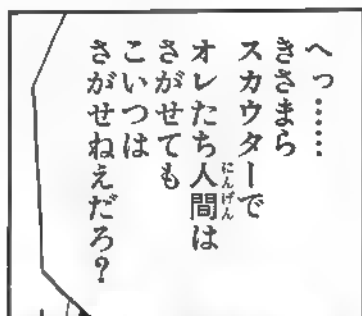 へっ……
きさまら
スカウターで
オレたち人間は
さがせても
こいつは
さがせねえだろ？